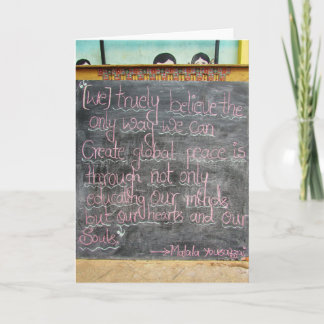 [we] truely believe the
only way we can
Create global peace is
through not only
educating our minds
but our hearts and our
Souls
Malala yousafzai